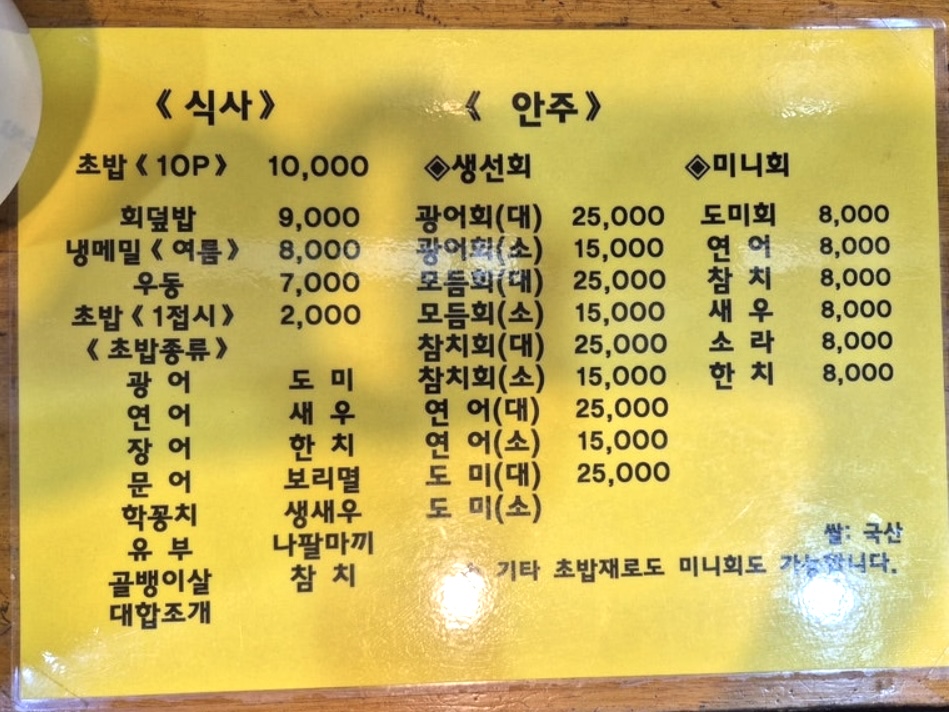 《 식사 》
초밥《 10P 》 10,000
회덮밥 9,000
냉메밀《 여름 》 8,000
우동 7,000
초밥《 1접시 》 2,000
《 초밥종류 》
광 어 도 미
연 어 새 우
장 어 한 치
문 어 보리멸
학꽁치 생새우
유 부 나팔마끼
골뱅이살 참 치
대합조개
《 안주 》
◈생선회
광어회(대) 25,000
광어회(소) 15,000
모듬회(대) 25,000
모듬회(소) 15,000
참치회(대) 25,000
참치회(소) 15,000
연 어(대) 25,000
연 어(소) 15,000
도 미(대) 25,000
도 미(소)
◈미니회
도미회 8,000
연 어 8,000
참 치 8,000
새 우 8,000
소 라 8,000
한 치 8,000
쌀: 국산
기타 초밥재로도 미니회도 가능합니다.